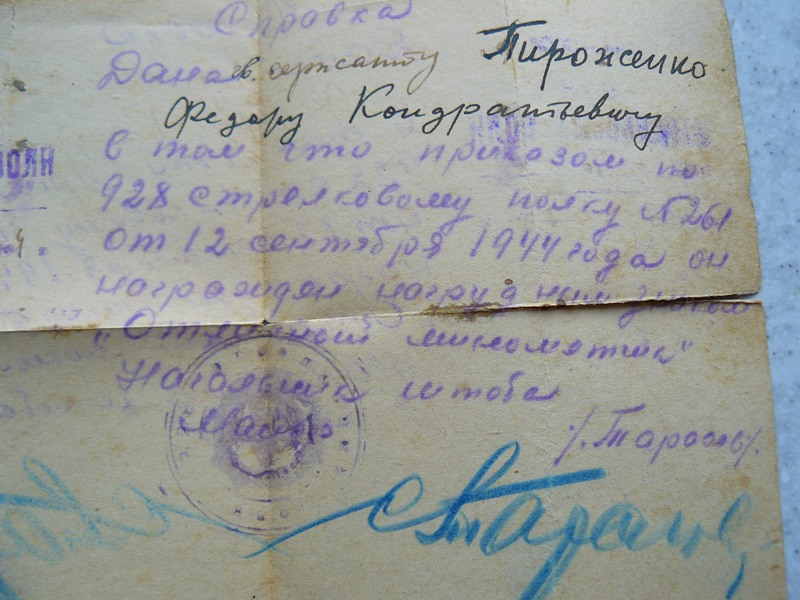 Справка
Дана гв. сержанту Пироженко
Федору Кондратьевичу
в том что приказом по
928 стрелковому полку №261
от 12 сентября 1944 года он
награжден нагрудным знаком
"Отличный минометчик"
Начальник штаба
Майор /.Тарасов/.